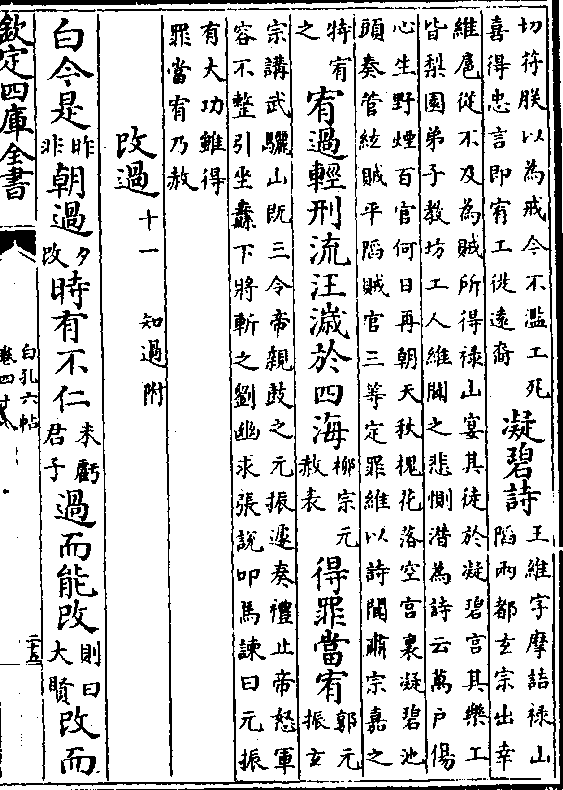 切符朕以為戒今不濫工死
喜得忠言即宥工從遠裔
凝碧詩
王維字摩詰禄山
陷兩都玄宗出幸
維扈從不及為賊所得禄山宴其徒於凝碧宫其樂工
皆梨園弟子教坊工人維聞之悲惻潛為詩云萬户傷
心生野煙百官何日再朝天秋槐花落空宫裏凝碧池
頭奏管絃賊平陷賊官三等定罪維以詩聞肅宗嘉之
特宥
之
宥過輕刑流汪濊於四海
柳宗元
赦表
得罪當宥
郭元
振玄
宗講武驪山既三令帝親鼓之元振遽奏禮止帝怒軍
容不整引坐纛下將斬之劉幽求張說叩馬諫曰元振
有大功雖得
罪當宥乃赦
改過 十一 知過附
白今是
昨
非
朝過
夕
改
時有不仁
未虧
君子
過而能改
則曰
大賢
改而
欽定四庫全書
白孔六帖
卷四十